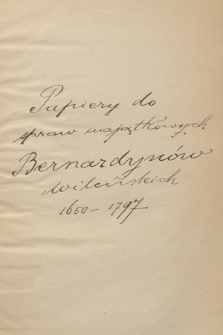 Papiery do
spraw majątkowych
Bernardynów
wileńskich
1650-1797